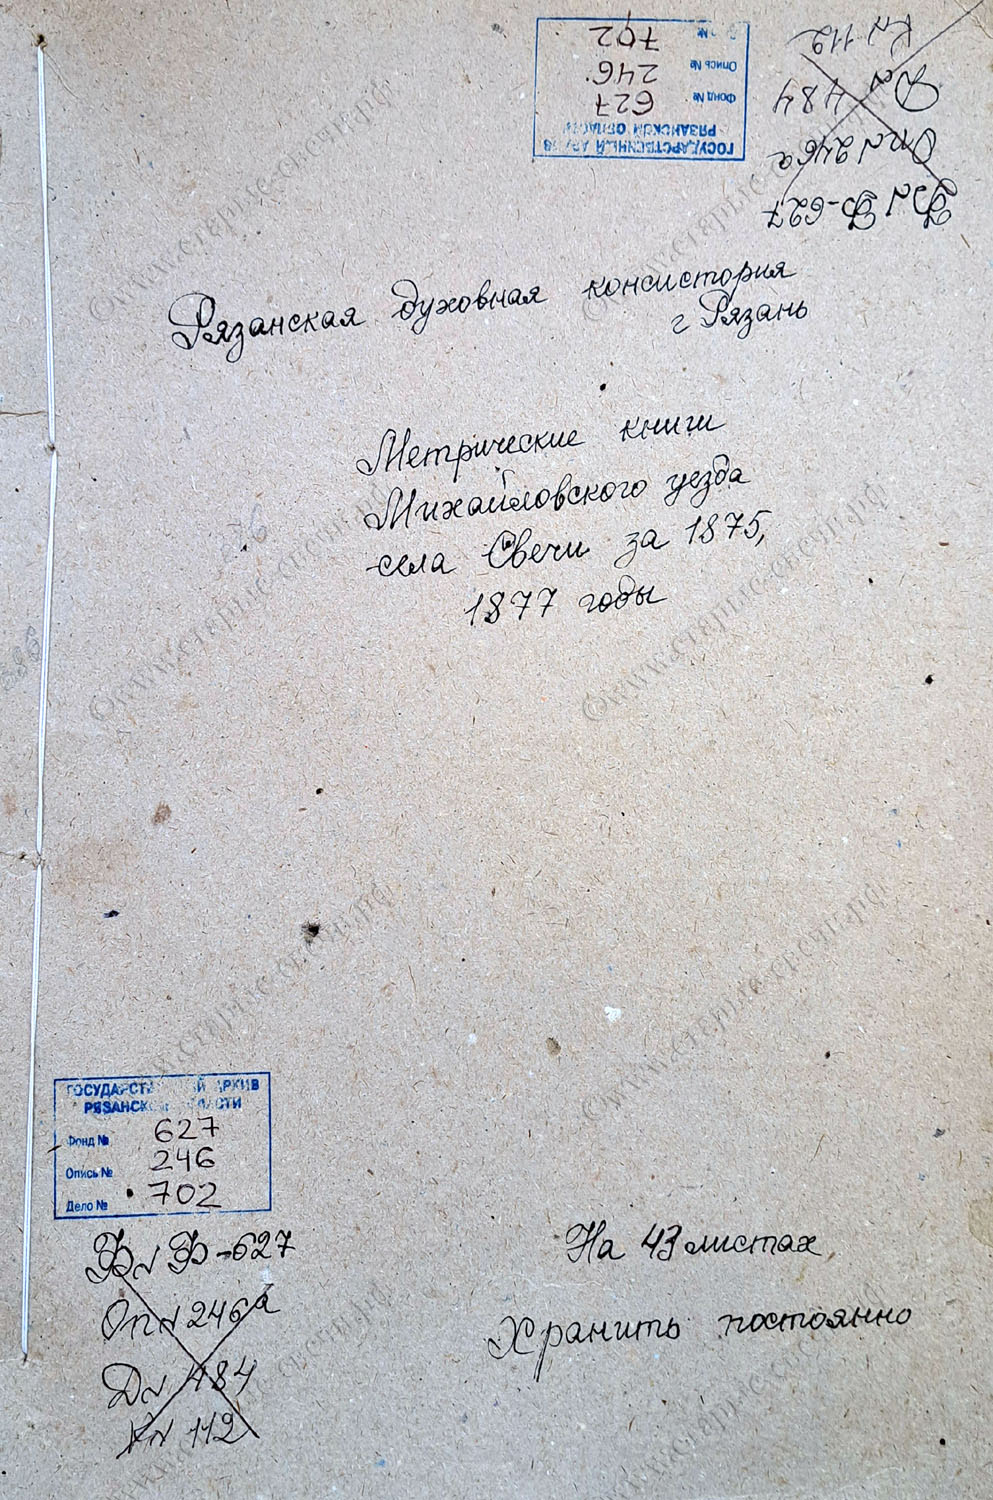 Кн 112
Д№ 484
Оп№ 246а
Ф№ Ф-627
ГОСУДАРСТВЕННЫЙ АРХИВ
РЯЗАНСКОЙ ОБЛАСТИ
Фонд № 627
Опись № 246
Дело № 702
Рязанская духовная консистория
г Рязань
Метрические книги
Михайловского уезда
села Свечи за 1875,
1877 годы
ГОСУДАРСТВЕННЫЙ АРХИВ
РЯЗАНСКОЙ ОБЛАСТИ
Фонд № 627
Опись № 246
Дело № 702
Ф№ Ф-627
Оп№ 246а
Д№ 484
К№ 112
На 43 листах
Хранить постоянно